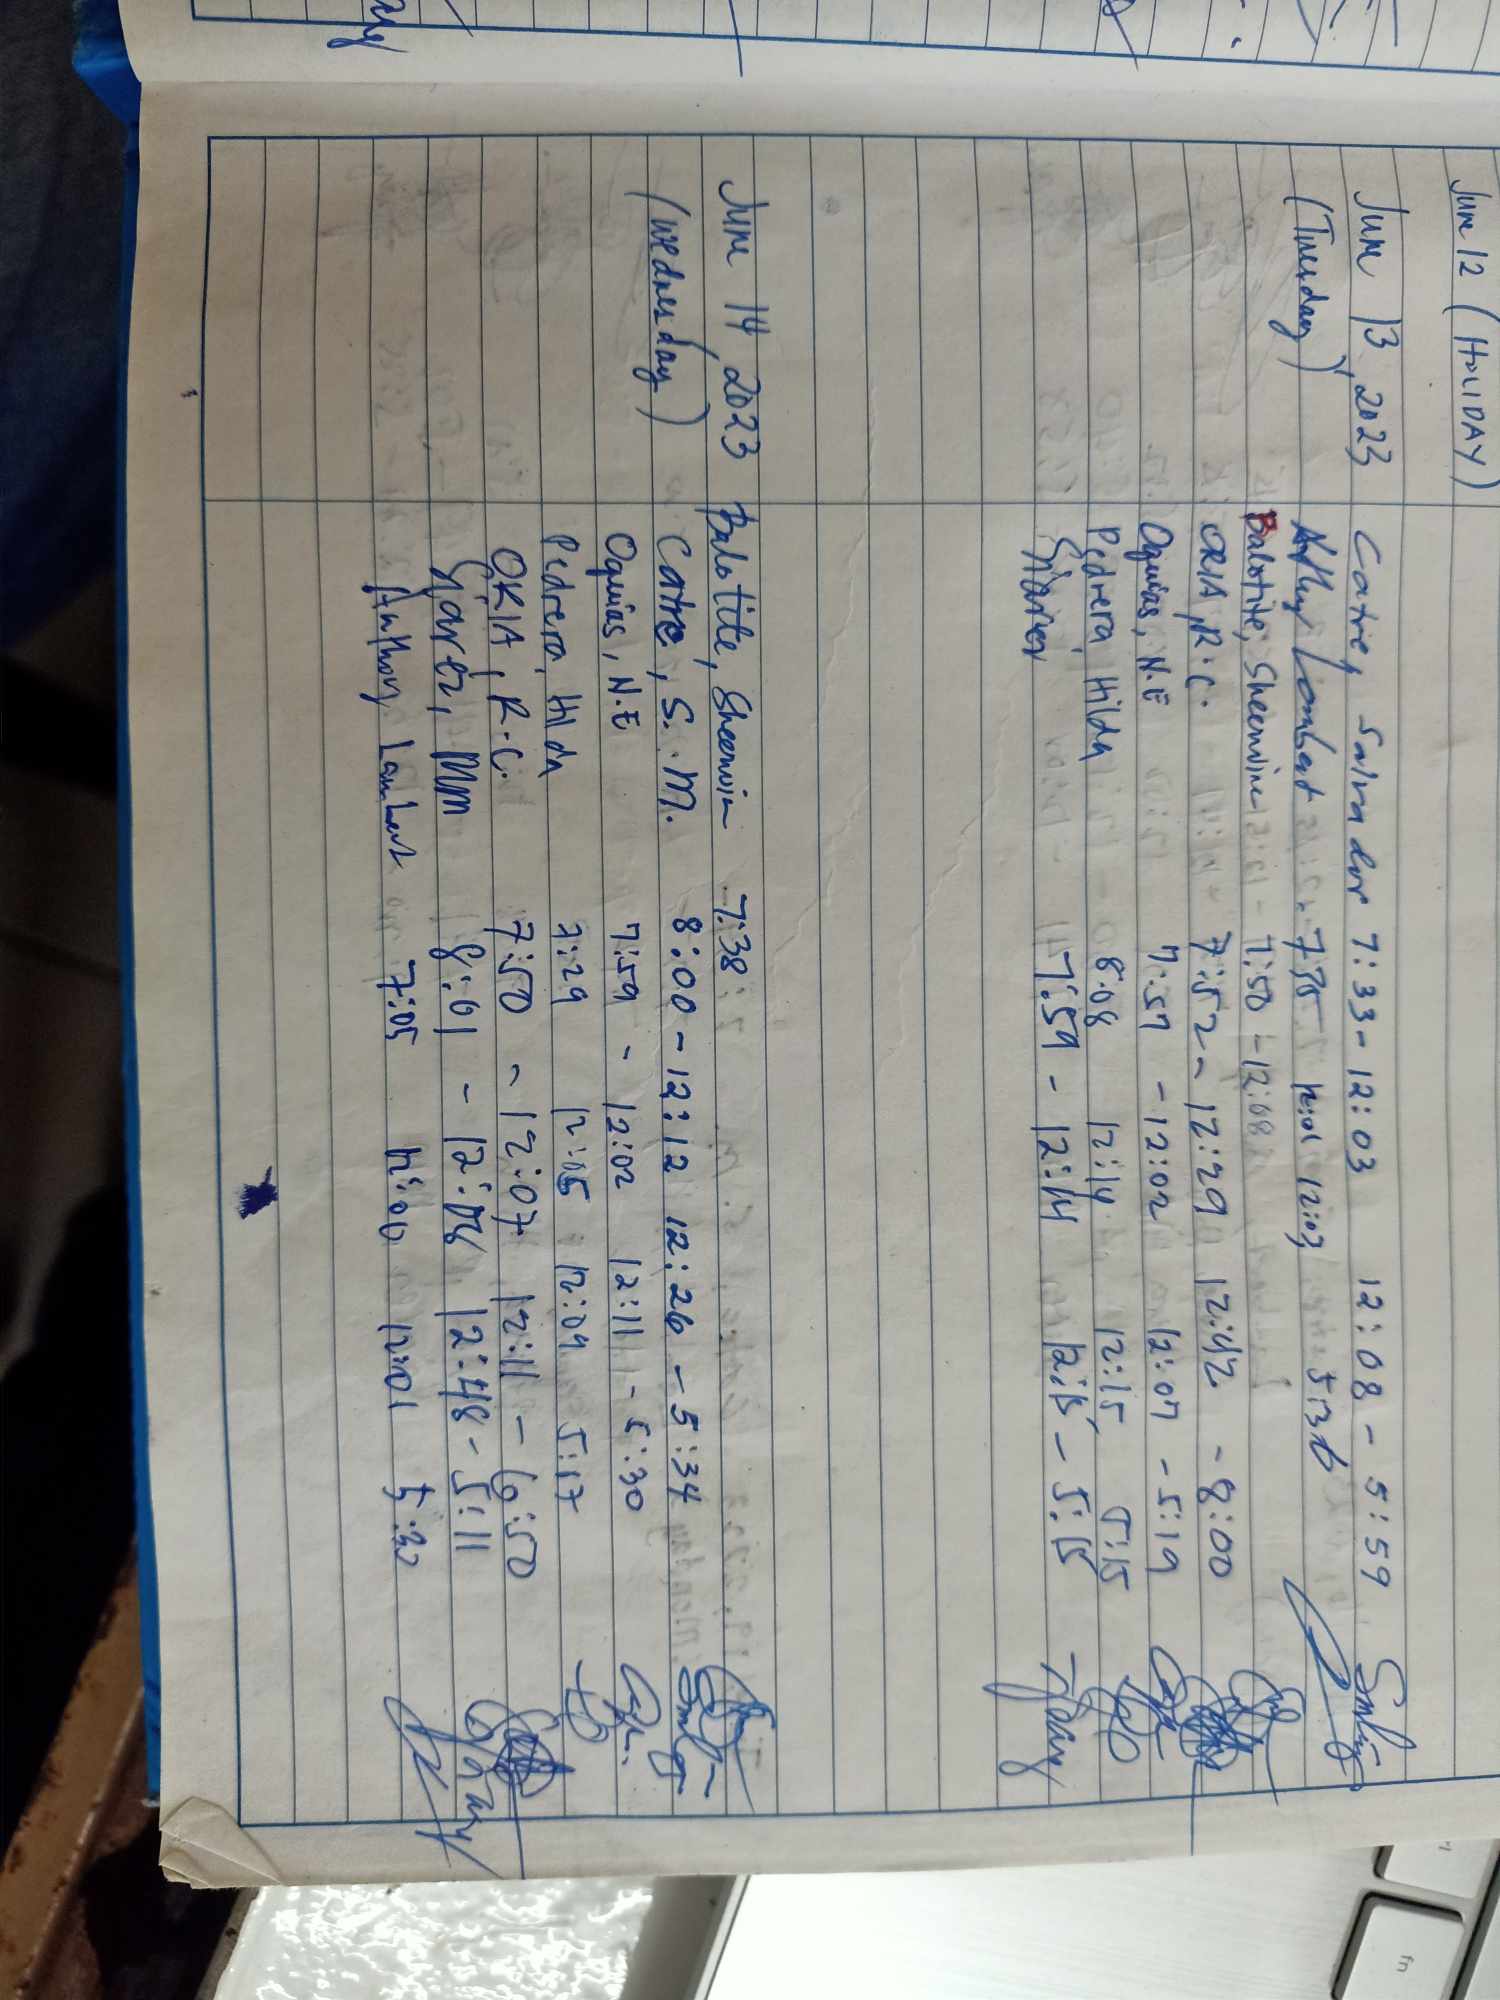 June 12 (HOLIDAY)
June 13, 2023 Catre, Salvador 7:33 - 12:03 12:08 - 5:59
(Tuesday) Lambat 12:03
Balotite, Sheenvin 7:50 - 12:08
ORIA, R.C. 7:52 - 12:29 12:42 - 8:00
Oquias, N.E 7:59 - 12:02 12:07 - 5:19
Pedrera, Hilda 8:08 12:14 12:15 5:15
7:59 - 12:14 12:15 - 5:15
June 14, 2023 Balotite, Sheenvin 7:38
(Wednesday) Catre, S.M. 8:00 - 12:12 12:26 - 5:34
Oquias, N.E 7:59 - 12:02 12:11 - 5:30
Pedrera, Hilda 7:29 12:05 12:09 5:17
ORIA, R.C. 7:50 - 12:07 12:11 - 6:50
8:01 - 12:48 - 5:11
Anthony Lambat 7:05 12:00 12:01 5:32
fn